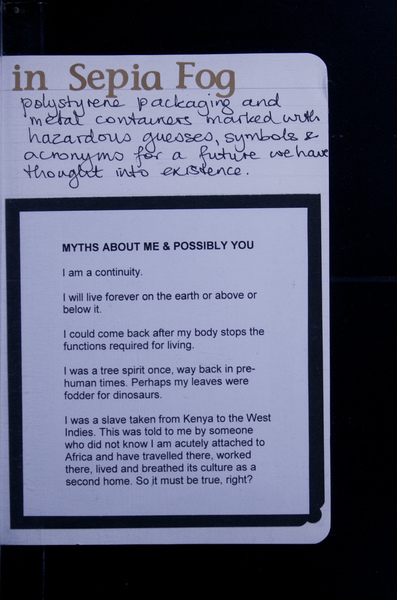 in Sepia Fog
polystyrene packaging and
metal containers marked with
hazardous guesses, symbols &
acronyms for a future we have
thought into existence.
MYTHS ABOUT ME & POSSIBLY YOU
I am a continuity.
I will live forever on the earth or above or
below it.
I could come back after my body stops the
functions required for living.
I was a tree spirit once, way back in pre-
human times. Perhaps my leaves were
fodder for dinosaurs.
I was a slave taken from Kenya to the West
Indies. This was told to me by someone
who did not know I am acutely attached to
Africa and have travelled there, worked
there, lived and breathed its culture as a
second home. So it must be true, right?